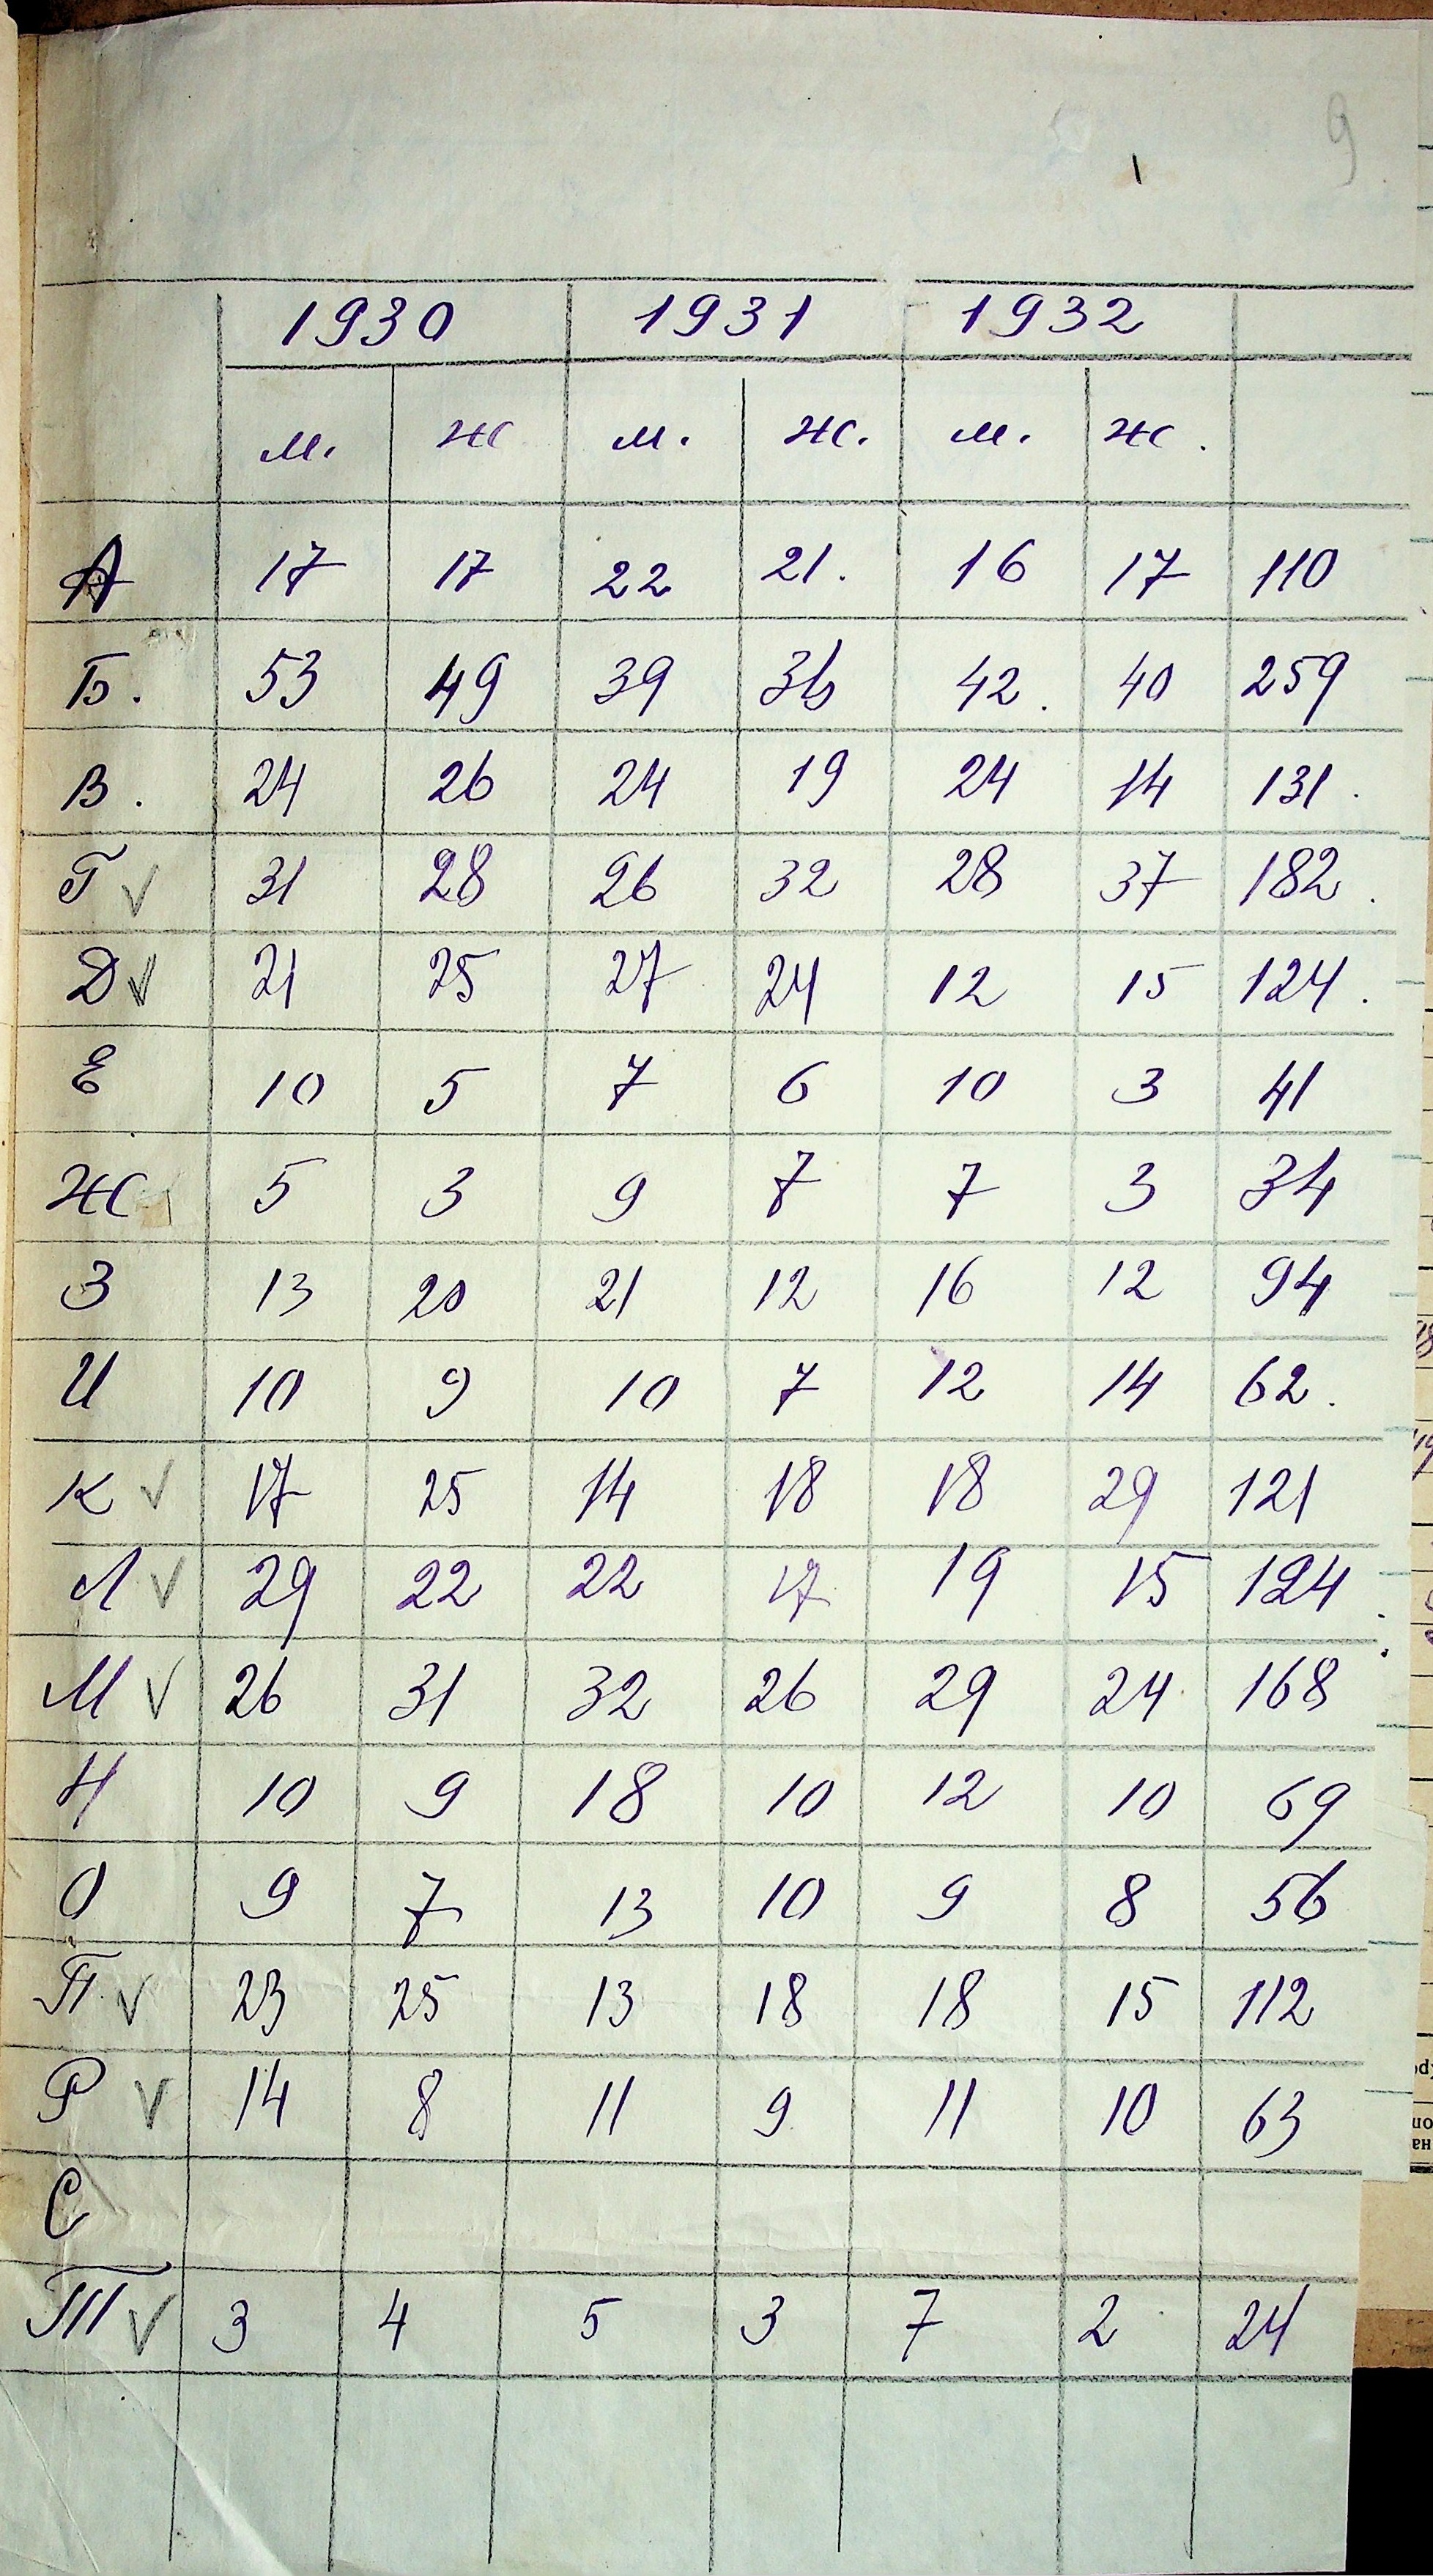 9
1930 1931 1932
м. ж м. ж. м. ж.
А 17 17 22 21. 16 17 110
Б. 53 49 39 36 42. 40 259
В. 24 26 24 19 24 14 131.
Г √ 31 28 26 32 28 37 182.
Д √ 21 25 27 24 12 15 124.
Е 10 5 7 6 10 3 41
Ж 5 3 9 7 7 3 34
З 13 20 21 12 16 12 94
И 10 9 10 7 12 14 62.
К √ 17 25 14 18 18 29 121
Л √ 29 22 22 17 19 15 124
М √ 26 31 32 26 29 24 168
Н 10 9 18 10 12 10 69
О 9 7 13 10 9 8 56
П √ 23 25 13 18 18 15 112
Р √ 14 8 11 9 11 10 63
С
Т √ 3 4 5 3 7 2 24